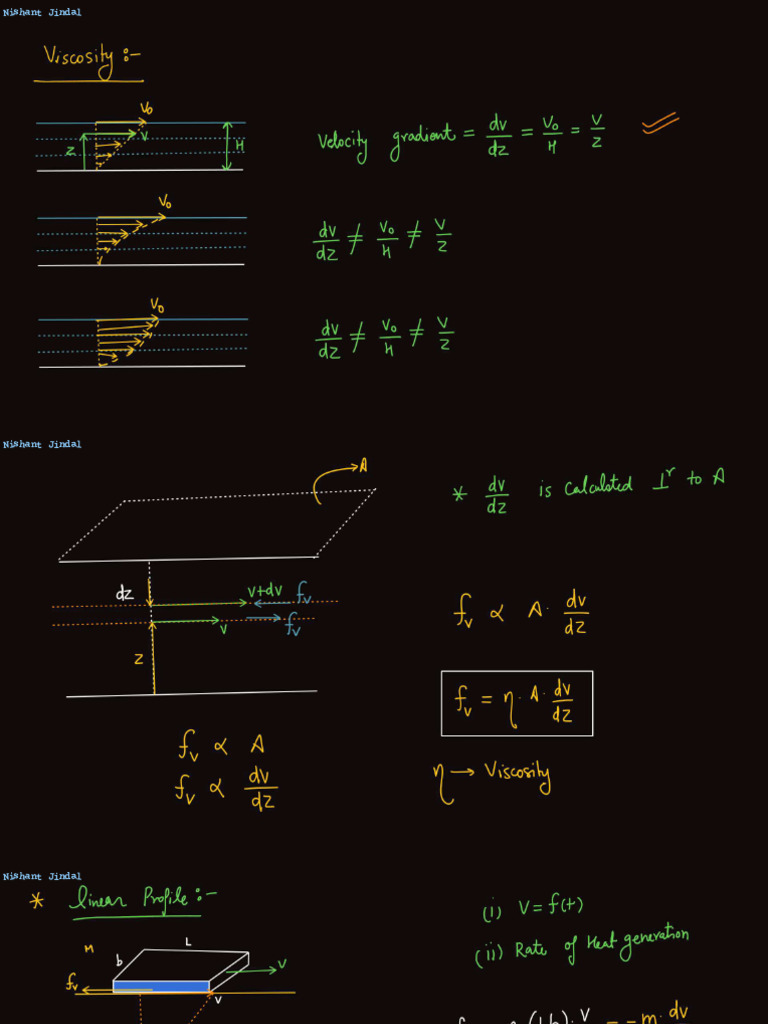 Nishant Jindal
Viscosity :-
V₀
V
Z
H
Velocity gradient = dv/dz = V₀/H = V/Z
V₀
dv/dz ≠ V₀/H ≠ V/Z
V₀
dv/dz ≠ V₀/H ≠ V/Z
Nishant Jindal
A
* dv/dz is calculated ⊥ʳ to A
dz
V+dv
fᵥ
V
fᵥ
Z
fᵥ ∝ A· dv/dz
fᵥ = η · A · dv/dz
fᵥ ∝ A
fᵥ ∝ dv/dz
η → Viscosity
Nishant Jindal
* linear Profile :-
(i) V = f(t)
(ii) Rate of Heat generation
M
b
L
V
fᵥ
V
V = -m· dv